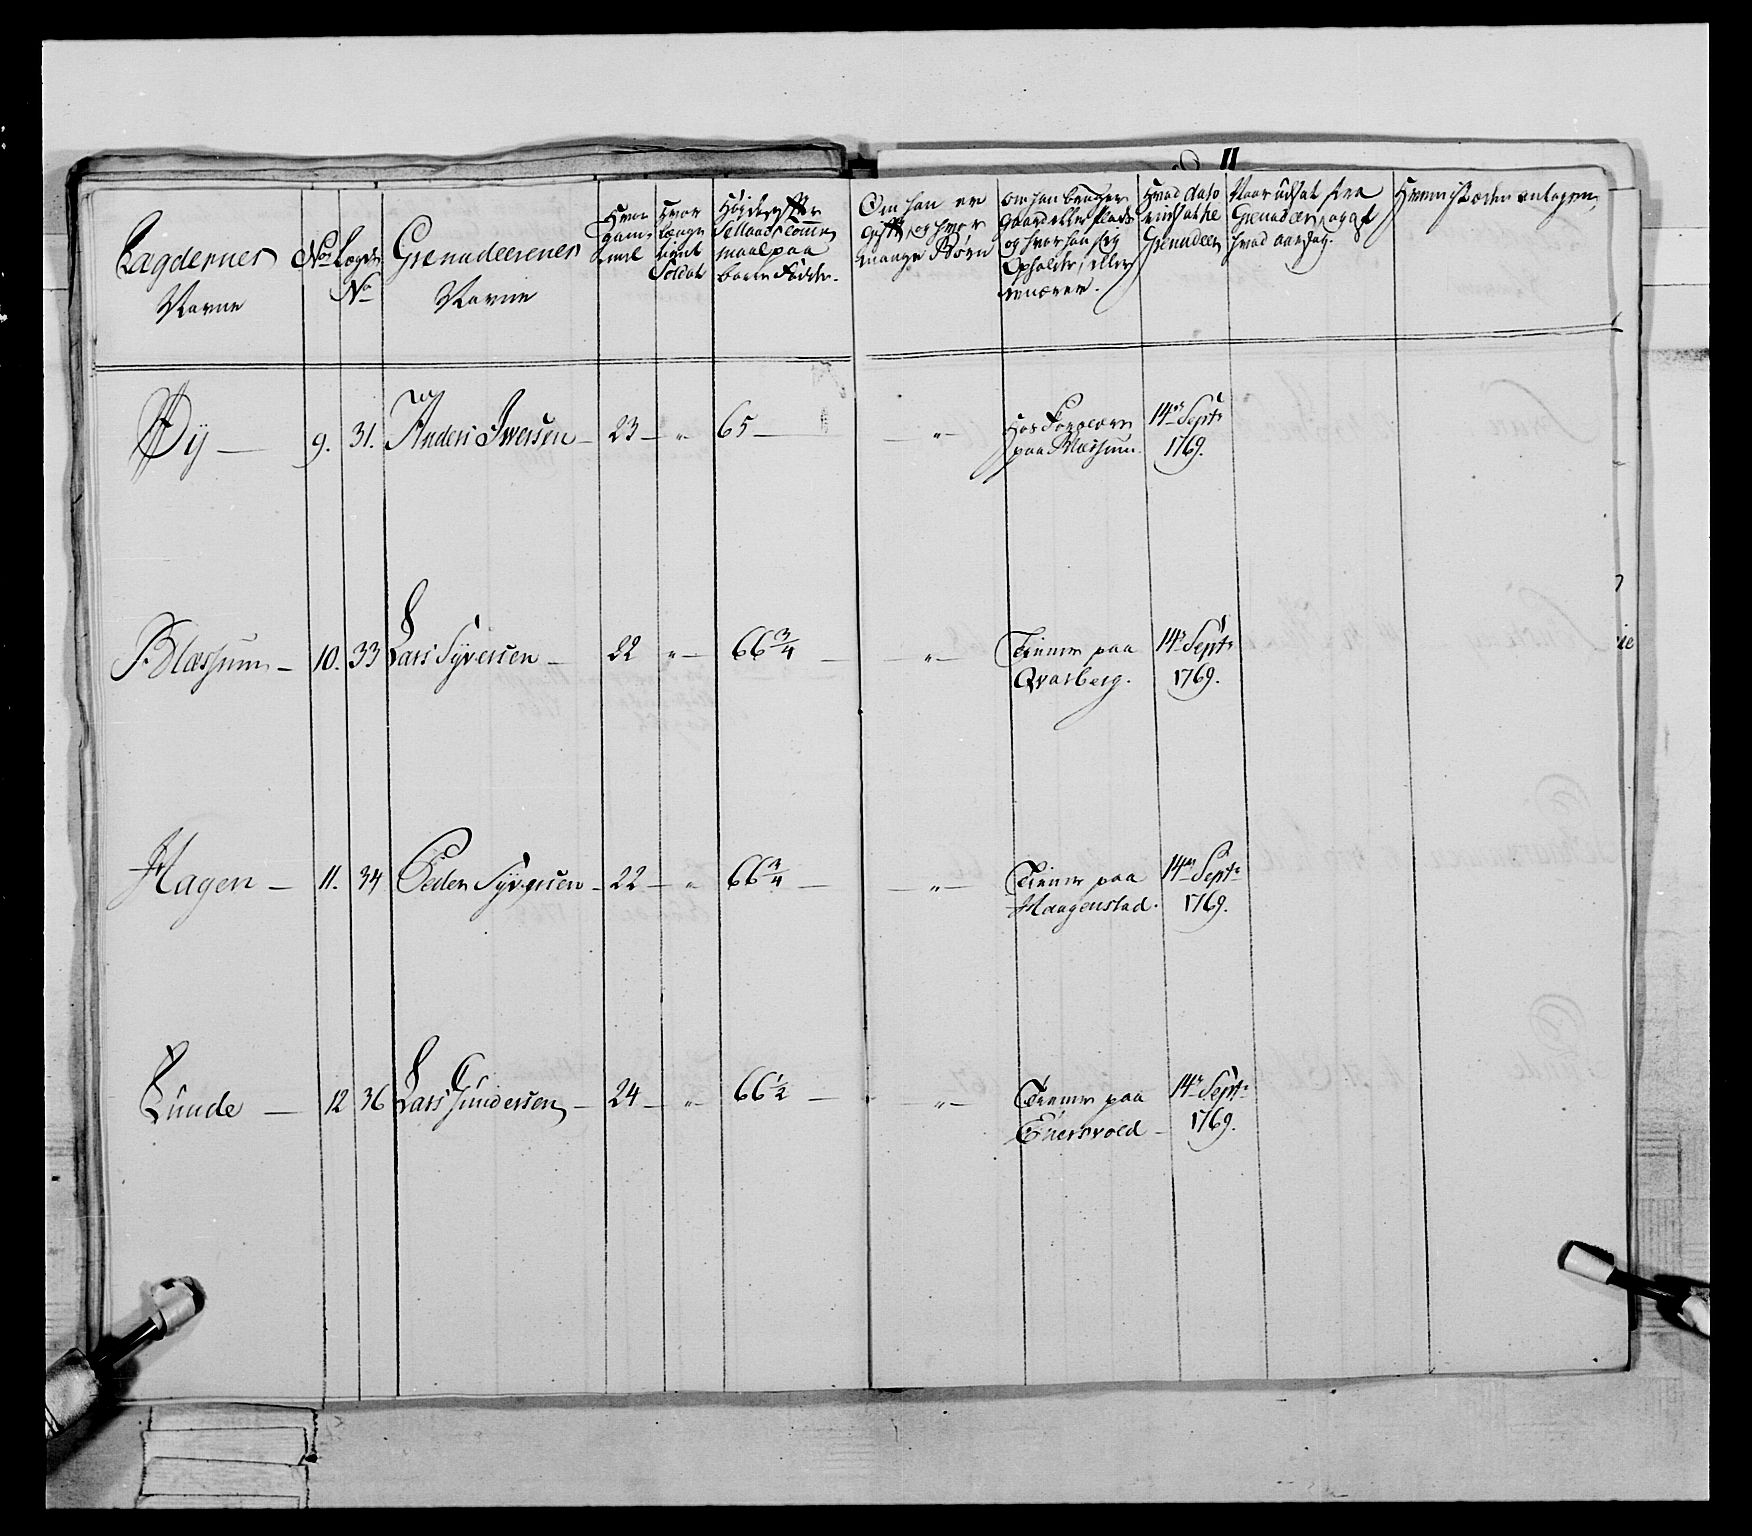 11
Lægdernes Navne
No
Lægds No
Grenadeerenes Navne
Hvor gam- mel
Hvor længe tient Soldat
Høyde efter Sellands Tomme maal paa bare Fødder.
Om han er gift, og hvor mange Børn
om han bruger Gaard eller Plads og hvor han sig Opholder, eller ernærer.
Hvad dato indsat te Grenadeer
Naar udsat fra Grenadeer og af hvad aarsag.
Hvem i Stæden antagen,
Bÿ — 9. 31. Anders Iwersen — 23 — " 65 — — " — Hos Forældre paa Blæssum. 14de Septr 1769.
Blæssum — 10. 33 Lars Syversen — 22 " — 66 3/4 — — " — Tiener paa Qvarberg. 14de Septr 1769.
Hagen — 11. 34 Peder Syversen — 22 — " 66 3/4 — — " — Tiener paa Haagenstad. 14de Septr 1769.
Lunde — 12 36 Lars Gundersen — 24 — " — 66 1/2 — " — Tiener paa 14de Septr 1769.